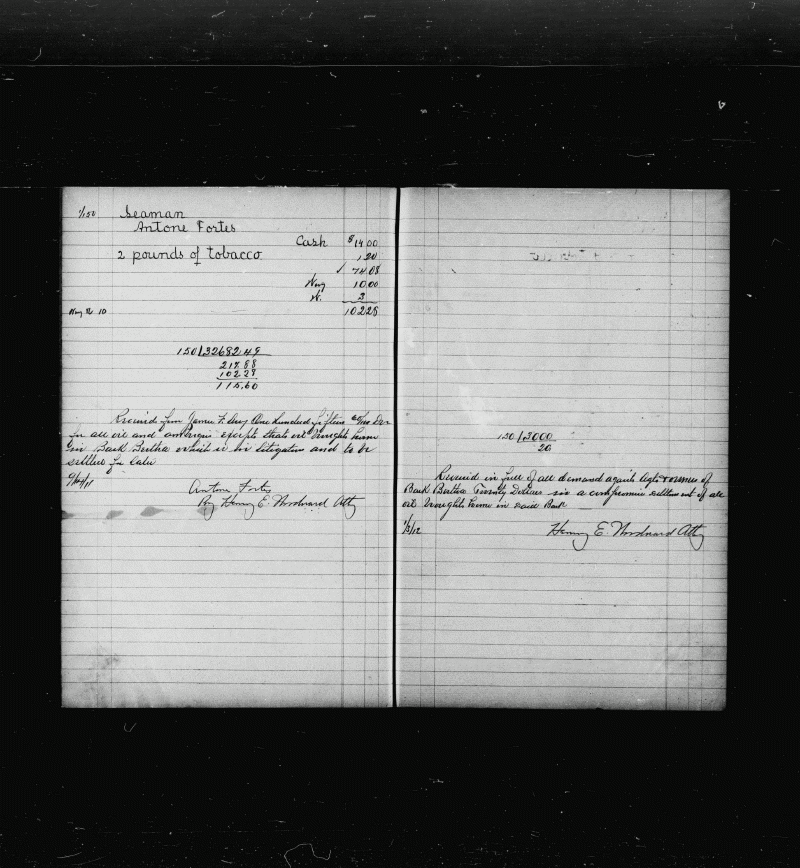 1/150 Seaman
Antone Fortes
Cash $14 00
2 pounds of tobacco 1 20
74.08
10.00
3
102 28
150/32682.49
217.88
102.28
115.60
Received from James F. Avery One hundred fifteen 60/100 Dor
for all oil and ambergris except Steats oil brought home
in Bark Bertha which is in litigation and to be
settled for later
Antone Fortes
By Henry E. Woodward Atty
150/3000
20
Received in full of all demand against Agts & owners of
Bark Bertha Twenty Dollars in a compromise settlement of all
oil brought home in said Bark
1/3/12 Henry E. Woodward Atty